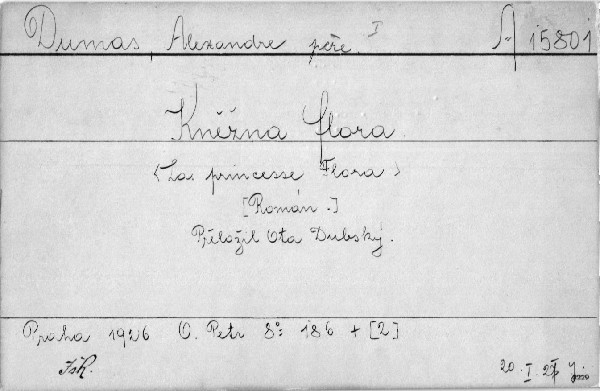 Dumas, Alexandre père. I A 15801
Kněžna Flora
<La princesse Flora>
[Román.]
Přeložil Ota Dubský.
Praha 1926 O. Petr 8°: 186 + [2]
20. I.